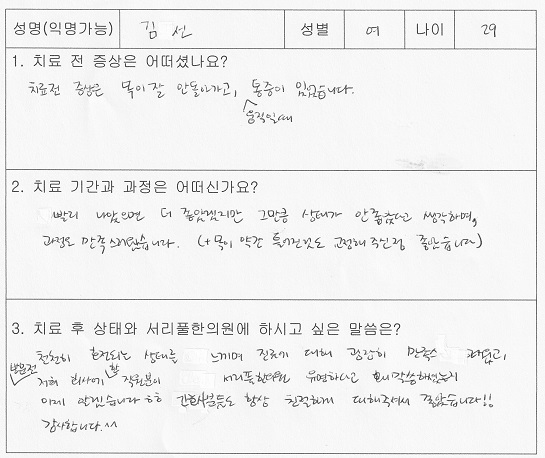 성명(익명가능) 김 선 성별 여 나이 29
1. 치료 전 증상은 어떠셨나요?
치료전 증상은 목이 잘 안돌아가고, 통증이 있었습니다.
움직일때
2. 치료 기간과 과정은 어떠신가요?
빨리 나았으면 더 좋았겠지만 그만큼 상태가 안좋았다고 생각하며,
과정도 만족스러웠습니다. (+목이 약간 틀어진것도 교정해주신점 좋았습니다)
3. 치료 후 상태와 서리풀한의원에 하시고 싶은 말씀은?
천천히 호전되는 상태를 느끼며 진료에 대해 굉장히 만족스러웠고,
방문전 저희 회사에 한 직원분이 서리풀한의원 유명하다고 하셨는지
이제 알겠습니다 ㅎㅎ 간호사분들도 항상 친절하게 대해주셔서 좋았습니다!!
감사합니다.^^